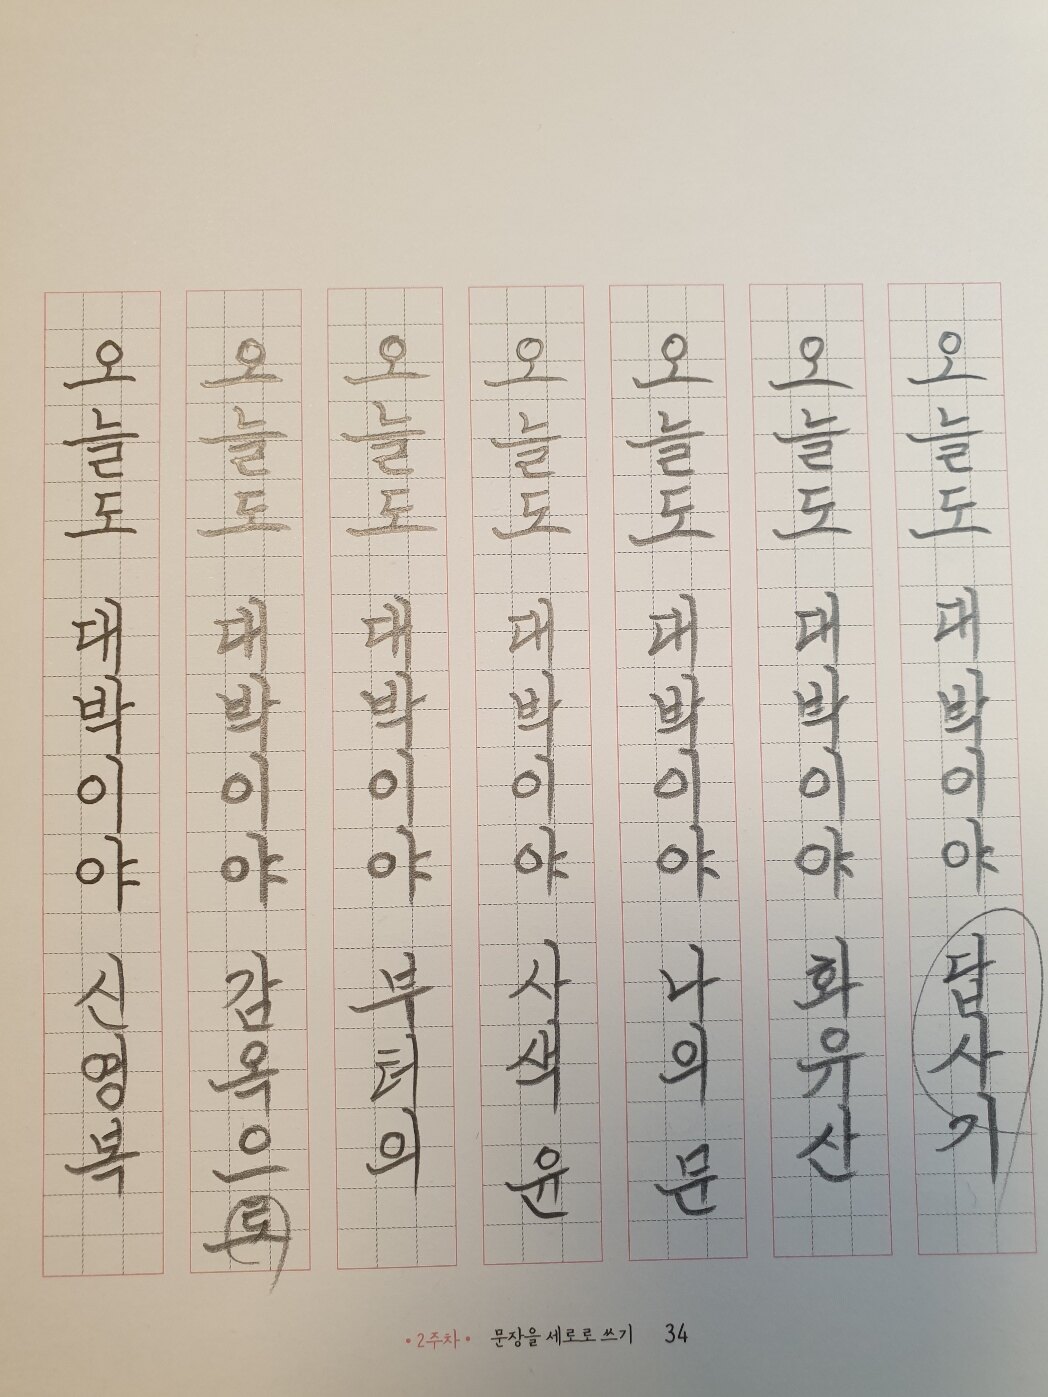 오늘도 대박이야 신영복
오늘도 대박이야 감옥으로
오늘도 대박이야 부터의
오늘도 대박이야 사색 윤
오늘도 대박이야 나의 문
오늘도 대박이야 화유산
오늘도 대박이야 답사기
•2주차• 문장을 세로로 쓰기 34